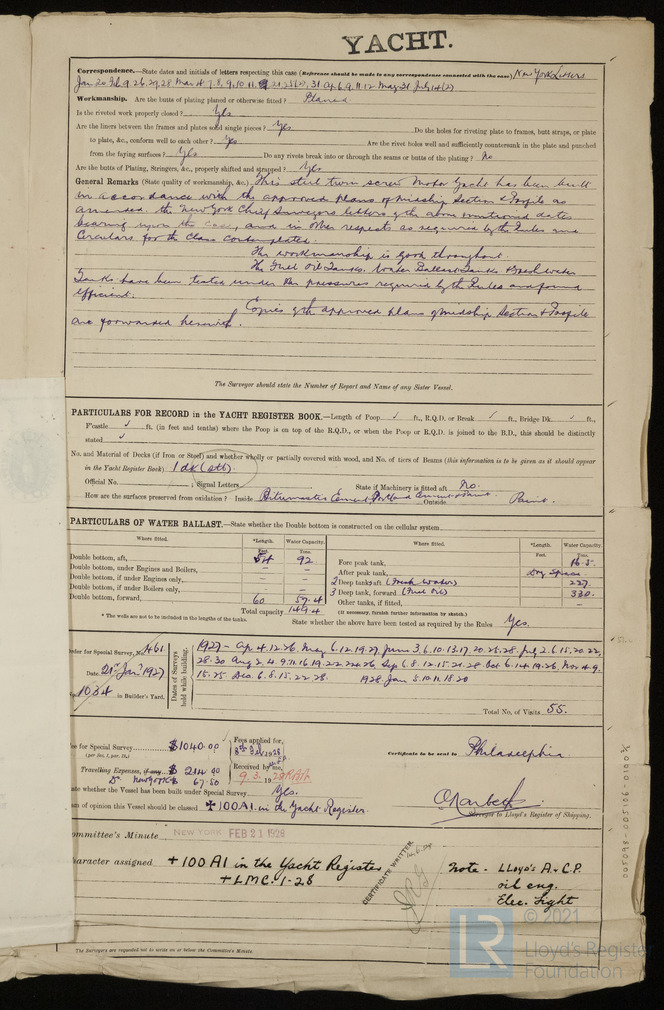 YACHT.
Correspondence.—State dates and initials of letters respecting this case (Reference should be made to any correspondence connected with the case) New York Letters
Jan 20 Feb 9 26, 29, 28 Mar 4, 7, 8, 9, 10, 11, 31 Ap 6, 9, 11, 12 May 31 July 14 (2)
Workmanship. Are the butts of plating planed or otherwise fitted? Planed
Is the riveted work properly closed? Yes
Are the liners between the frames and plates solid single pieces? Yes. Do the holes for riveting plate to frames, butt straps, or plate
to plate, &c., conform well to each other? Yes Are the rivet holes well and sufficiently countersunk in the plate and punched
from the faying surfaces? Yes Do any rivets break into or through the seams or butts of the plating? No
Are the butts of Plating, Stringers, &c., properly shifted and strapped? Yes
General Remarks (State quality of workmanship, &c.) This steel twin screw Motor Yacht has been built
in accordance with the approved plans of Midship Section & Profile as
amended, the New York Chief Surveyors letters of the above mentioned dates
bearing upon the case, and in other respects as required by the Rules and
Circulars for the Class contemplated.
The workmanship is good throughout.
The Fuel Oil Tanks, Water Ballast Tanks & Fresh water
Tanks have been tested under the pressures required by the Rules and found
efficient.
Copies of the approved plans of Midship Section & Profile
are forwarded herewith.
The Surveyor should state the Number of Report and Name of any Sister Vessel.
PARTICULARS FOR RECORD in the YACHT REGISTER BOOK.—Length of Poop ✓ ft., R.Q.D. or Break ✓ ft., Bridge Dk. ✓ ft.,
F'castle ✓ ft. (in feet and tenths) where the Poop is on top of the R.Q.D., or when the Poop or R.Q.D. is joined to the B.D., this should be distinctly
stated ✓
No. and Material of Decks (if Iron or Steel) and whether wholly or partially covered with wood, and No. of tiers of Beams (this information is to be given as it should appear
in the Yacht Register Book) 1 dk (stl).
Official No. ; Signal Letters State if Machinery is fitted aft No.
How are the surfaces preserved from oxidation? Inside Bitumastic Cement, Portland Cement & Paint. Outside Paint.
PARTICULARS OF WATER BALLAST.—State whether the Double bottom is constructed on the cellular system
Where fitted. *Length. Water Capacity. Where fitted. *Length. Water Capacity.
Feet. Tons. Feet. Tons.
Double bottom, aft, 54 92 Fore peak tank, 16.5
Double bottom, under Engines and Boilers, — — After peak tank, Dry Space
Double bottom, if under Engines only, — — 2 Deep tank, aft (Fresh Water) 227
Double bottom, if under Boilers only, — — 3 Deep tank, forward (Fuel Oil) 330
Double bottom, forward, 60 57.4 Other tanks, if fitted, —
Total capacity 149.4 (If necessary, furnish further information by sketch.)
* The wells are not to be included in the lengths of the tanks. State whether the above have been tested as required by the Rules Yes.
Order for Special Survey, No. 461
Date 21st Jan. 1927
1054 in Builder's Yard.
Dates of Surveys held while building.
1927 - Ap 4. 12. 26. May 6. 12. 19. 27. June 3. 6. 10. 13. 17. 20. 25. 28. July 2. 6. 15. 20. 22.
28. 30 Aug 2. 4. 9. 11. 16. 19. 22. 24. 26 Sep 6. 8. 12. 15. 21. 28 Oct 6. 14. 19. 26. Nov 4. 9.
15. 25 Dec. 6. 8. 15. 22. 28. 1928 Jan 5. 10. 11. 18. 20
Total No. of Visits 55.
Fee for Special Survey $1040.00
(per Sec. 1, par. 18,)
Travelling Expenses, if any $ 214.00
Do New York $ 67.50
Fees applied for,
8th Feb 1928
Received by me,
9.3.1928
Certificate to be sent to Philadelphia
State whether the Vessel has been built under Special Survey Yes.
am of opinion this Vessel should be classed ✠100A1. in the Yacht Register.
Surveyor to Lloyd's Register of Shipping.
Committee's Minute NEW YORK FEB 21 1928
Character assigned +100 A1 in the Yacht Register
+ LMC. 1-28
CERTIFICATE WRITTEN
Note - LLoyd's A. & C.P.
oil eng.
Elec. Light
The Surveyors are requested not to write on or below the Committee's Minute.
005098-005106-0100 2/2
© 2021
LR
Lloyd's Register
Foundation